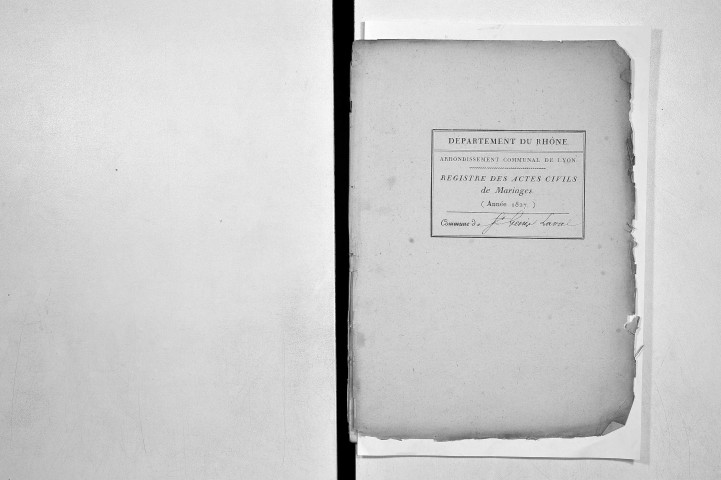 DEPARTEMENT DU RHÔNE.
ARRONDISSEMENT COMMUNAL DE LYON
REGISTRE DES ACTES CIVILS
de Mariages
( Année 1827. )
Commune de St Genis Laval